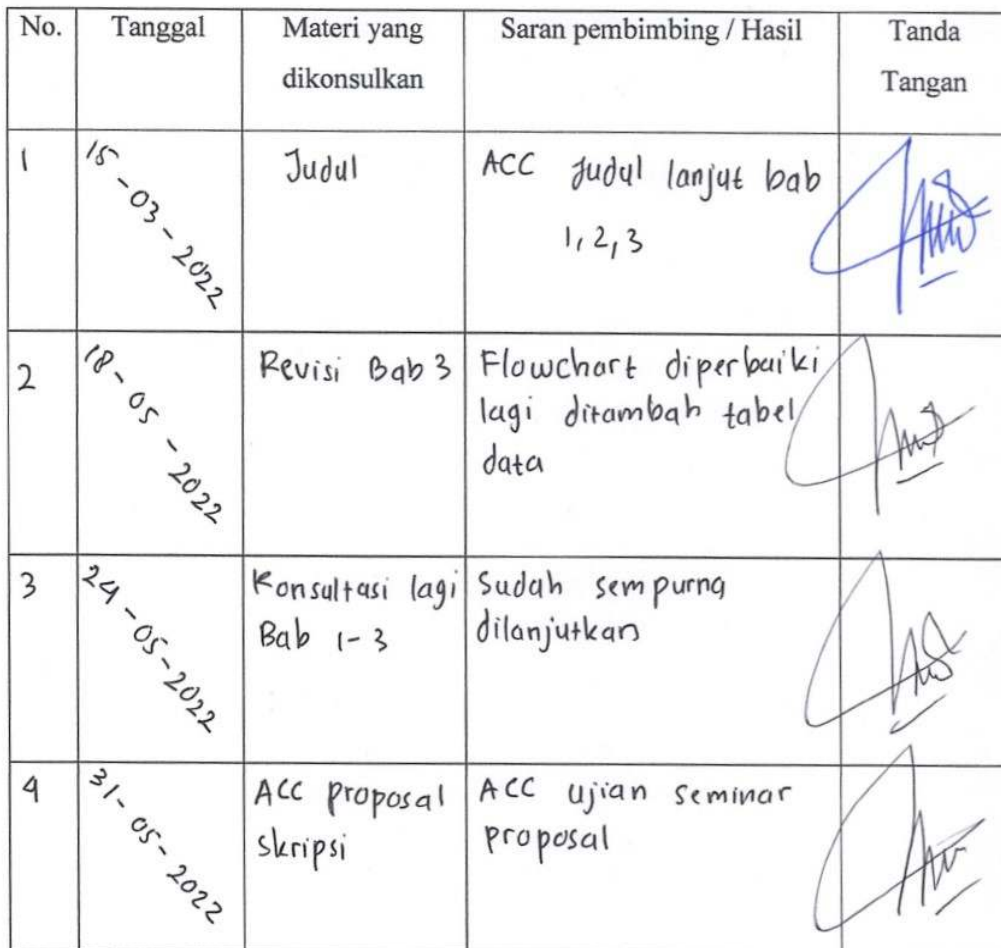 No. Tanggal Materi yang Saran pembimbing / Hasil Tanda
dikonsulkan Tangan
1 15-03-2022 Judul ACC Judul lanjut bab
1, 2, 3
2 18-05-2022 Revisi Bab 3 Flowchart diperbaiki
lagi ditambah tabel
data
3 24-05-2022 Konsultasi lagi Sudah sempurna
Bab 1-3 dilanjutkan
4 31-05-2022 ACC proposal ACC ujian seminar
skripsi proposal